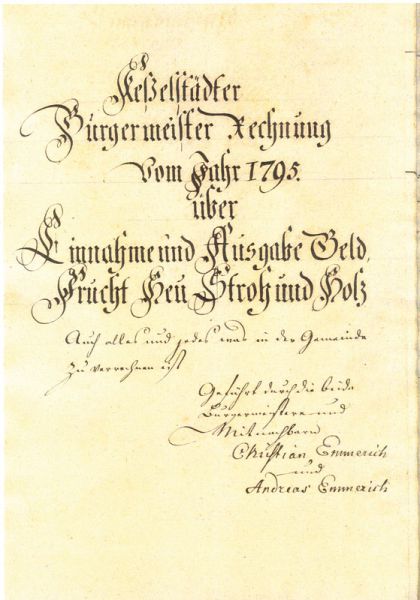 Keßelstädter
Bürgermeister Rechnung
Vom Jahr 1795.
über
Einnahme und Ausgabe Geld,
Frucht Heu, Stroh und Holz
Auch alles und jedes was in der Gemeinde
Zu verrechnen ist
Geführt durch die beide
Bürgermeistere und
Mitnachbarn
Christian Emmerich
und
Andreas Emmerich